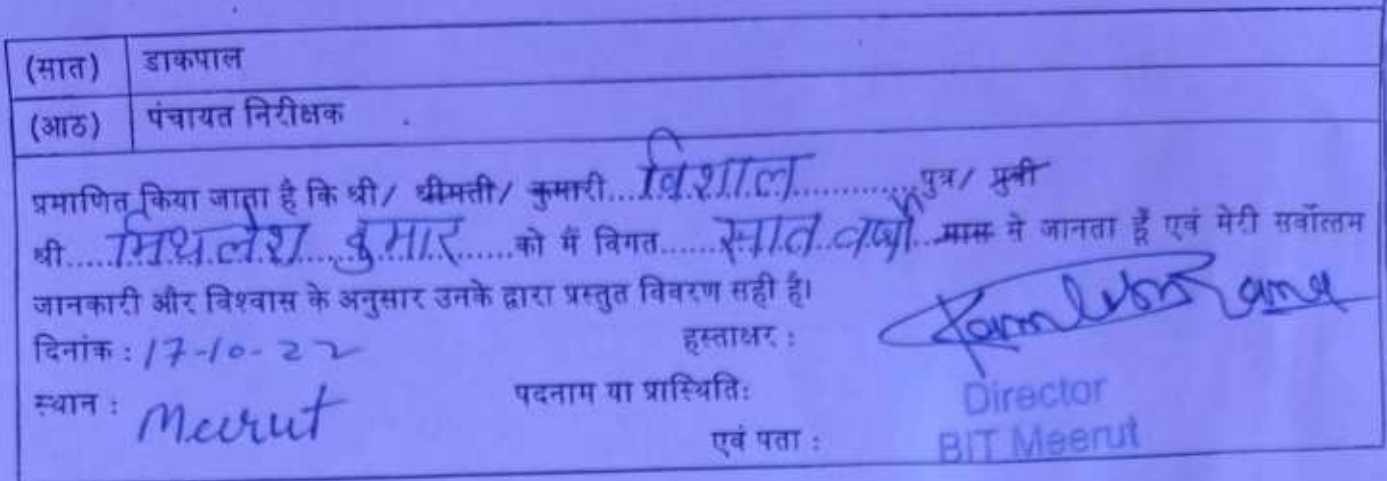 (सात) डाकपाल
(आठ) पंचायत निरीक्षक
प्रमाणित किया जाता है कि श्री/ श्रीमती/ कुमारी...विशाल............पुत्र/ पुत्री
श्री.....मिथलेश...कुमार......को मैं विगत......सात वर्षों मास से जानता हूँ एवं मेरी सर्वोत्तम
जानकारी और विश्वास के अनुसार उनके द्वारा प्रस्तुत विवरण सही है।
दिनांक : 17-10-22 हस्ताक्षर :
स्थान : Meerut पदनाम या प्रास्थिति: Director
एवं पता : BIT Meerut